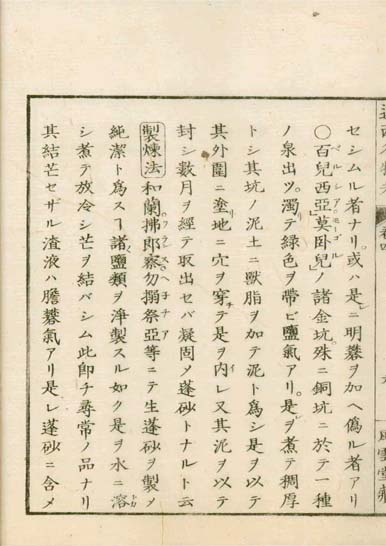 セシムル者ナリ。或ハ是レニ明礬ヲ加ヘ偽ル者アリ
〇百兒西亞ペルシア莫卧兒モゴルノ諸金坑。殊ニ銅坑ニ於テ一種
ノ泉出ツ。濁テ緑色ヲ帯ビ鹽氣アリ。是レヲ煮テ稠厚
トシ其坑ノ泥土ニ獣脂ヲ加テ泥ト爲シ是ヲ以テ
其外圍ニ塗リ地ニ穴ヲ穿チ是ヲ内レイ又其泥ヲ以テ
封シ數月ヲ經テ取出セバ凝固メ蓬砂トナルト云
製煉法 和蘭拂郎察フランス勿搦祭亞ヘネチア等ニテ生蓬砂ヲ製メ
純潔ト爲スヿ諸鹽類ヲ淨製スル如ク是ヲ水ニ溶トカ
シ煮テ放冷シ芒ヲ結バシム此即チ尋常ノ品ナリ
其結芒セザル渣液ハ膽礬氣アリ是レ蓬砂ニ含メ